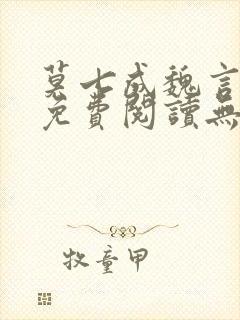 莫七成魏言
免費閱讀無
牧童甲